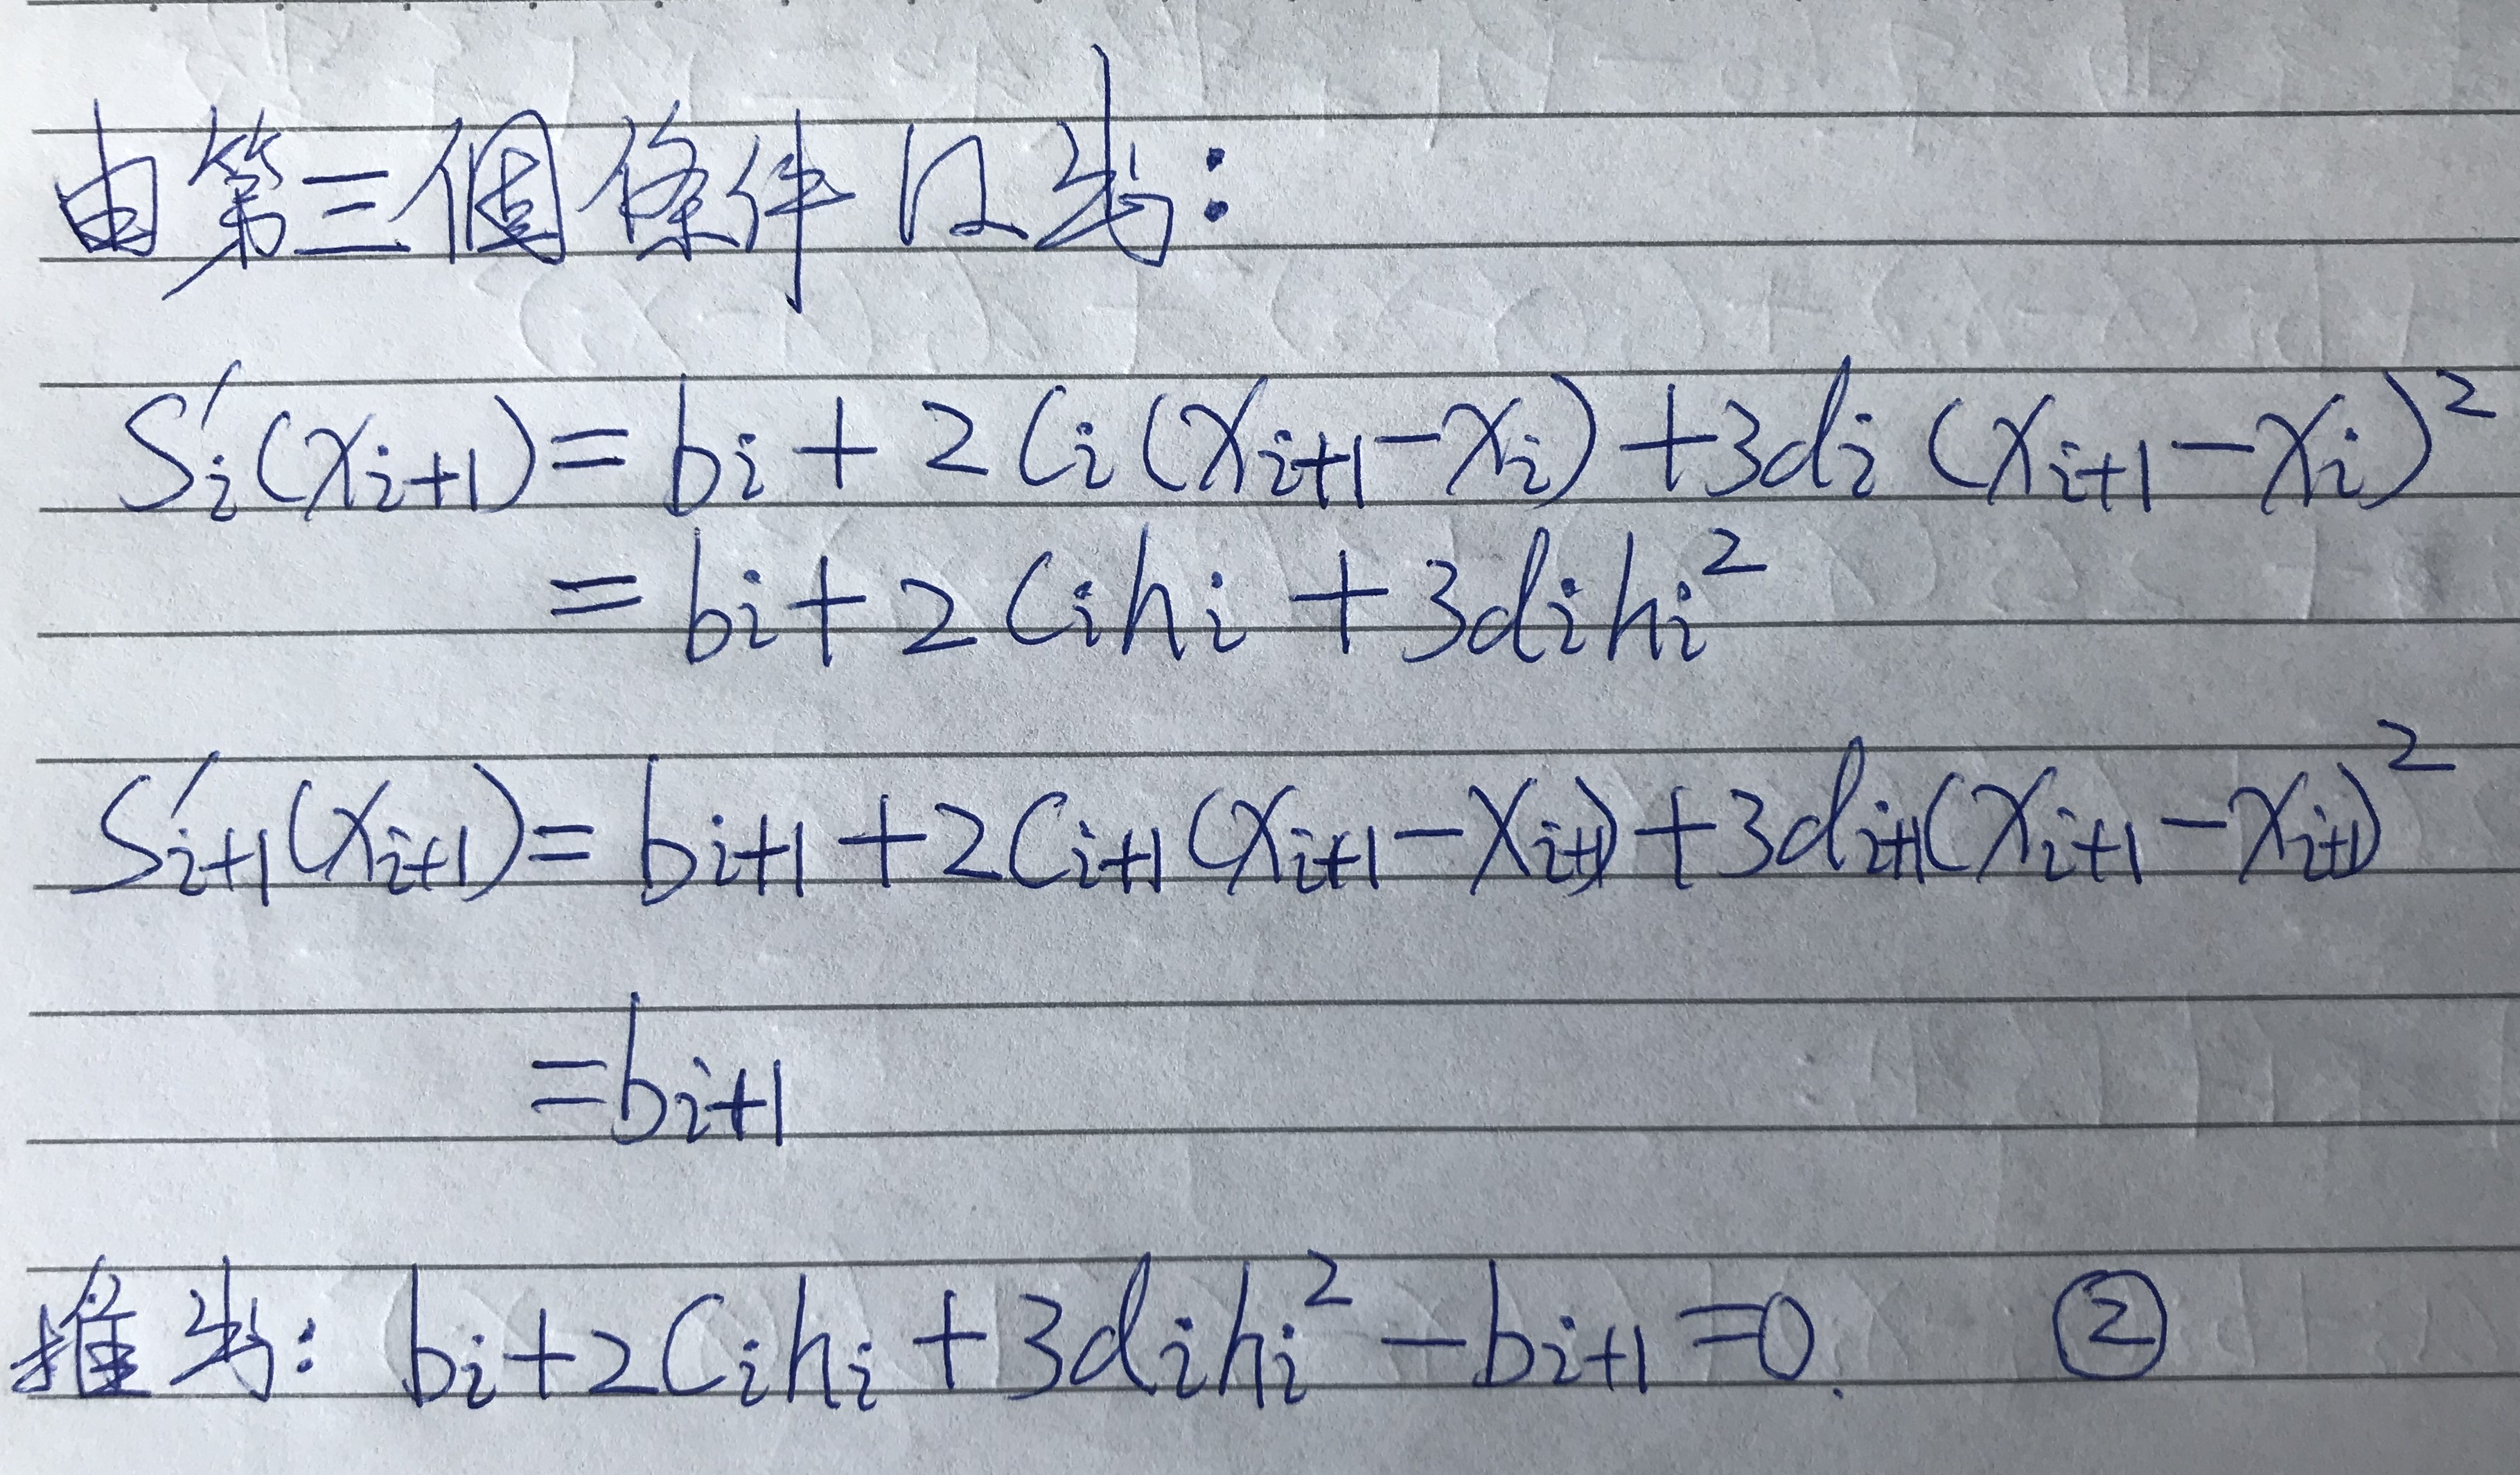 由第三個條件可出:
S'i(xi+1) = bi + 2ci(xi+1 - xi) + 3di(xi+1 - xi)²
= bi + 2cihi + 3dihi²
S'i+1(xi+1) = bi+1 + 2ci+1(xi+1 - xi+1) + 3di+1(xi+1 - xi+1)²
= bi+1
推出: bi + 2cihi + 3dihi² - bi+1 = 0. ②